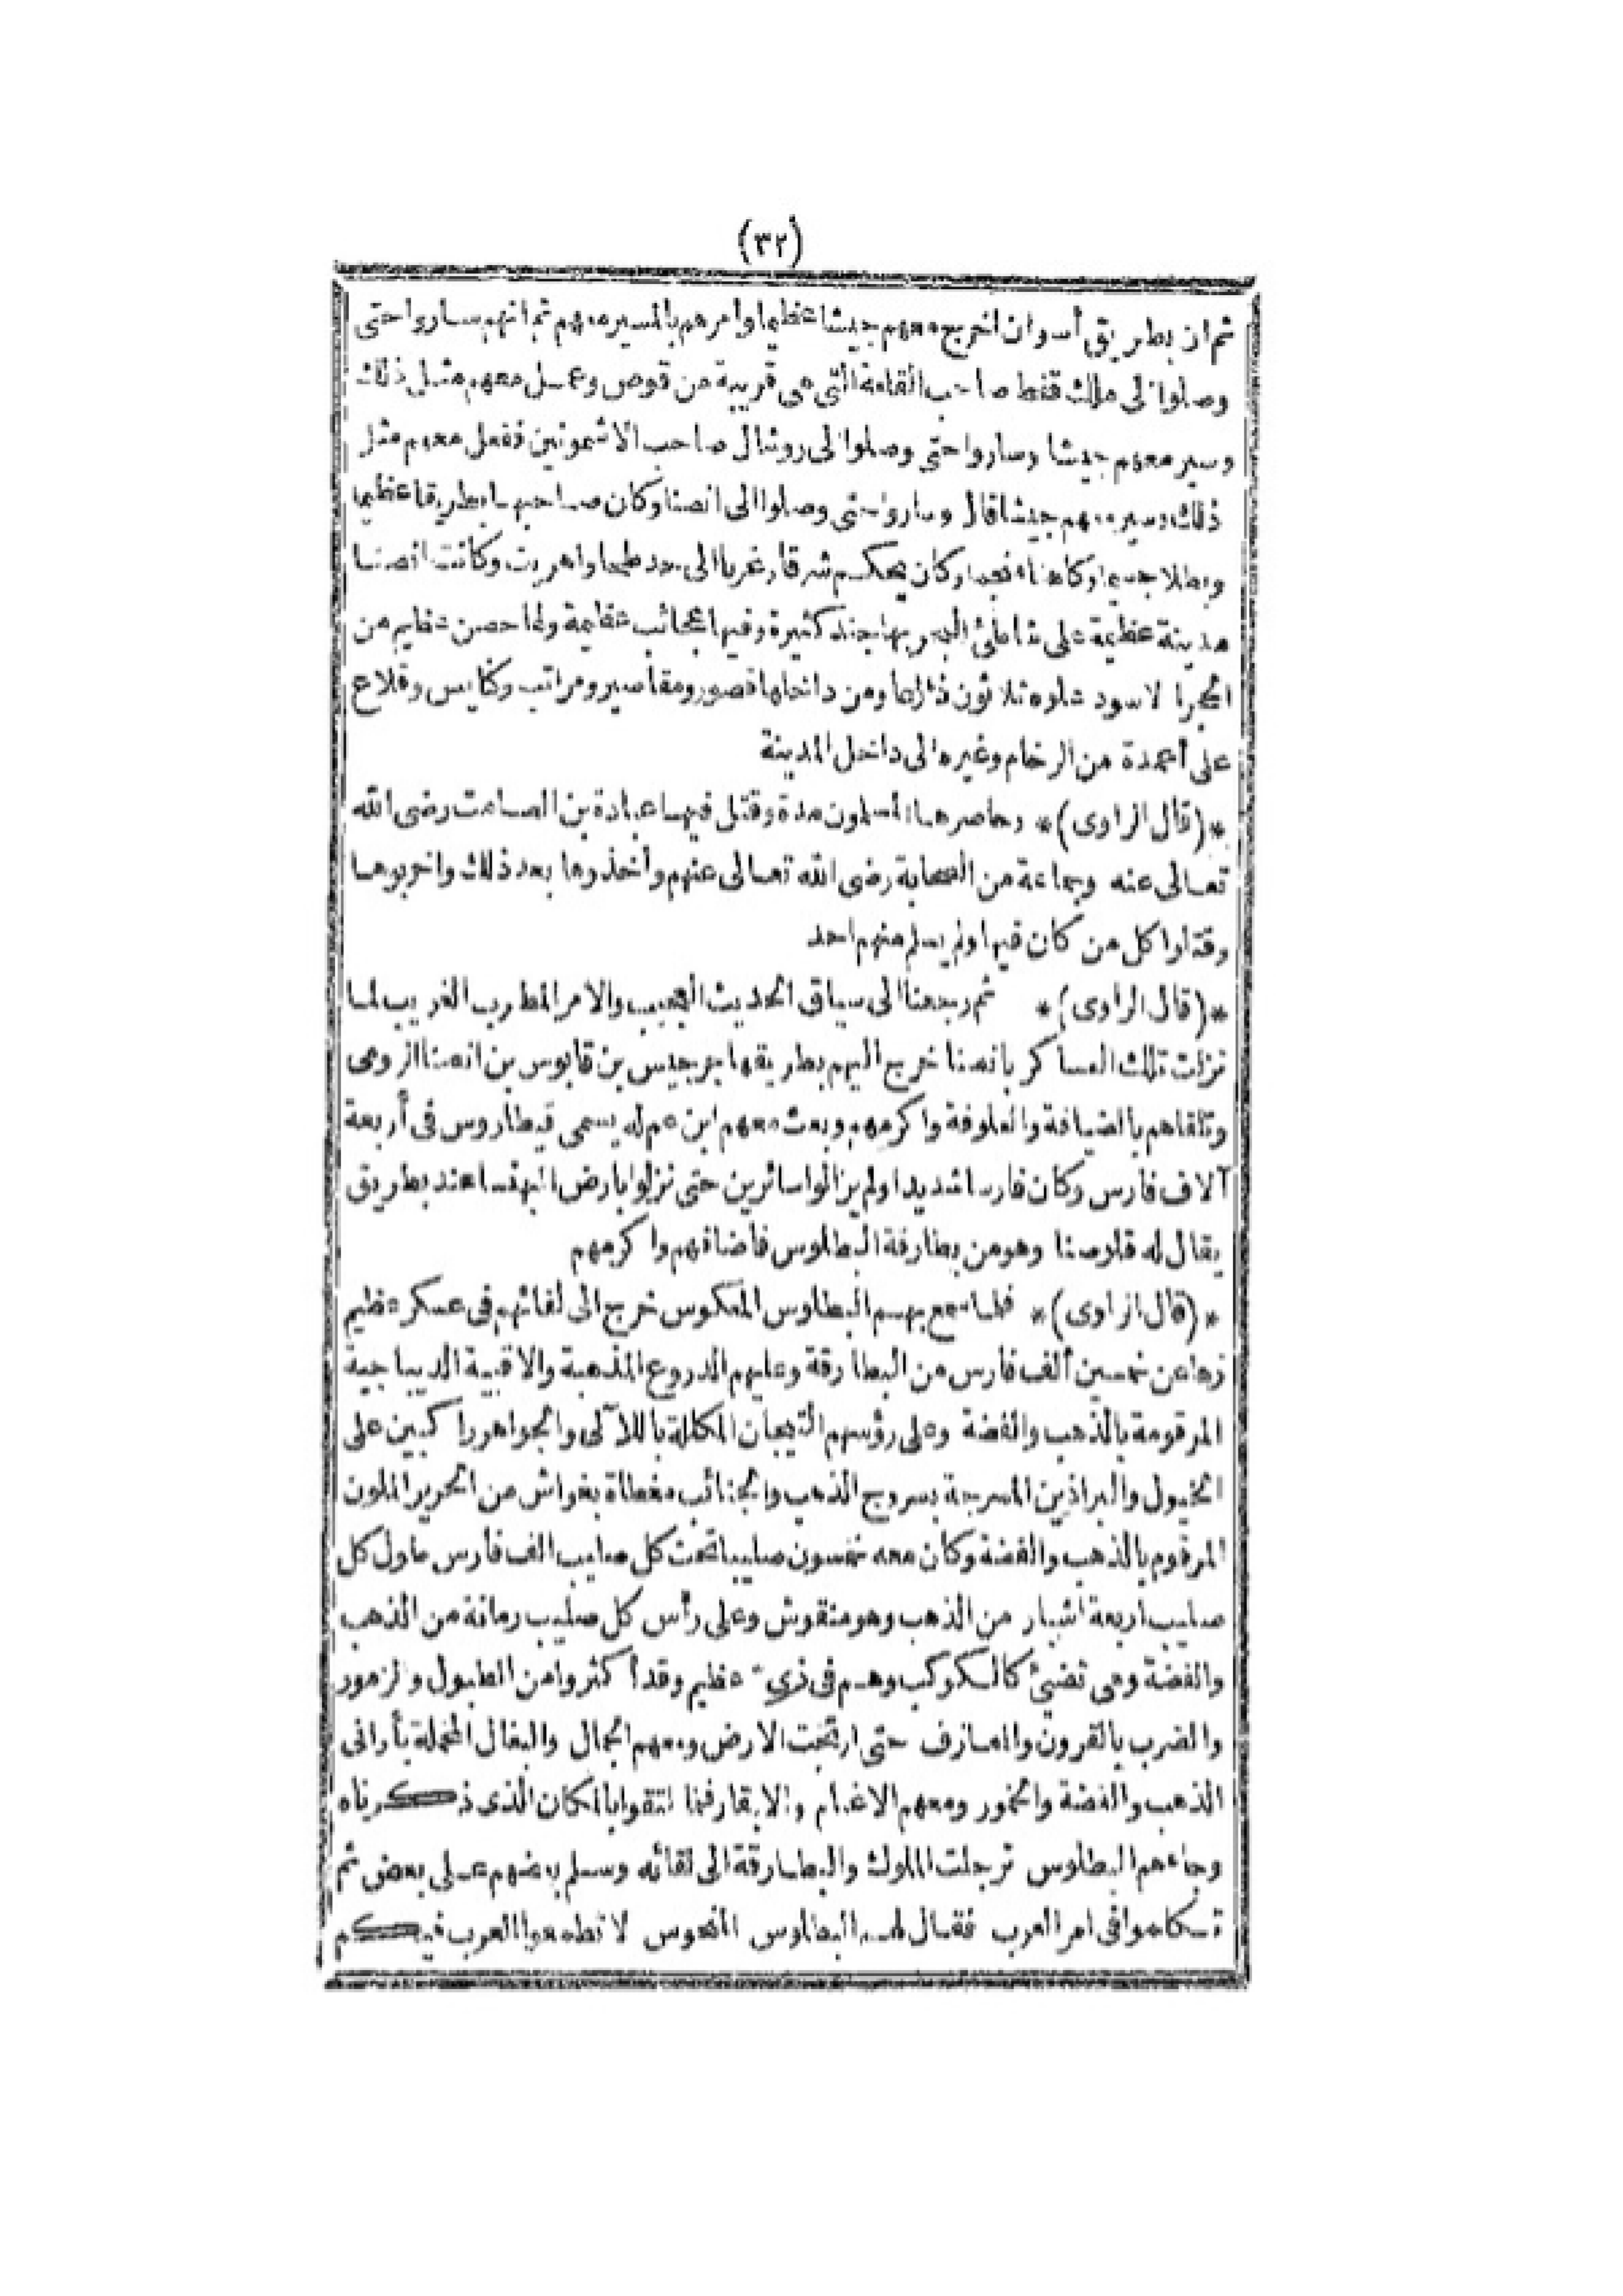 (٣٢)
ثم ان بطريق أسوان اخرج معهم جيشا عظيما وأمرهم بالمسير معهم ثم انهم ساروا حتى
وصلوا الى ملك قفط صاحب القلعة التى هى قريبة من قوص وعمل معهم مثل ذلك
وسير معهم جيشا وساروا حتى وصلوا الى روشال صاحب الاشمونين ففعل معهم مثل
ذلك وسير معهم جيشا قال وساروا حتى وصلوا الى انصنا وكان صاحبها بطريقا عظيما
وبطلا وكان يحكم شرقا وغربا الى حد طحا واهريت وكانت انصنا
مدينة عظيمة على شاطئ البحر بها جند كثيرة وفيها عجائب عظيمة ولها حصن عظيم من
الحجر الاسود علوه ثلاثون ذراعا ومن داخلها قصور ومقاصير ومراتب وكنايس وقلاع
على أعمدة من الرخام وغيره الى داخل المدينة
*(قال الراوى)* وحاصرها المسلمون مدة وقتل فيها عبادة بن الصامت رضى الله
تعالى عنه وجماعة من الصحابة رضى الله تعالى عنهم وأخذوها بعد ذلك واخربوها
وقتلوا كل من كان فيها ولم يسلم منهم احد
*(قال الراوى)* ثم رجعنا الى سياق الحديث العجيب والامر المطرب الغريب لما
نزلت تلك العساكر بانصنا خرج اليهم بطريقها جرجيس بن قابوس بن انصنا الرومى
وتلقاهم بالضيافة والعلوفة واكرمهم وبعث معهم ابن عم له يسمى قيطاروس فى أربعة
آلاف فارس وكان فارسا شديدا ولم يزالوا سائرين حتى نزلوا بارض البهنسا عند بطريق
يقال له قلوصنا وهو من بطارقة البطلوس فأضافهم واكرمهم
*(قال الراوى)* فلما سمع بهم البطلوس المعكوس خرج الى لقائهم فى عسكر عظيم
زها عن خمسين ألف فارس من البطارقة وعليهم الدروع المذهبة والاقبية الديباجية
المرقومة بالذهب والفضة وعلى رؤسهم التيجان المكللة باللآلى والجواهر راكبين على
الخيول والبراذين المسرجة بسروج الذهب والجنائب مغطاة بغواش من الحرير الملون
المرقوم بالذهب والفضة وكان معه خمسون صليبا تحت كل صليب الف فارس طول كل
صليب أربعة اشبار من الذهب وهو منقوش وعلى رأس كل صليب رمانة من الذهب
والفضة وهى تضيئ كالكوكب وهم فى زى عظيم وقد أكثروا من الطبول والزمور
والضرب بالقرون والمعازف حتى ارتجت الارض ومعهم الجمال والبغال المحملة بأوانى
الذهب والفضة والخمور ومعهم الاغنام والابقار فلما التقوا بالمكان الذى ذكرناه
وجاءهم البطلوس ترجلت الملوك والبطارقة الى لقائه وسلم بعضهم على بعض ثم
تكلموا فى امر العرب فقال لهم البطلوس المنحوس لا تطمعوا العرب فيكم